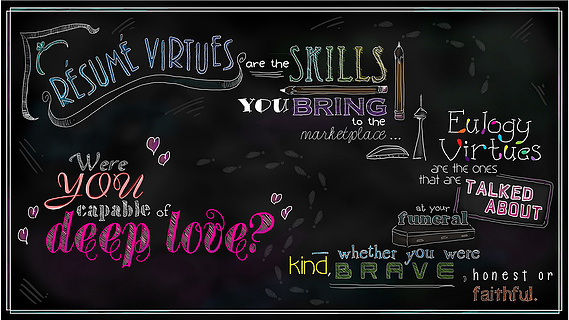 RÉSUMÉ VIRTUES
are the SKILLS
YOU BRING
to the
marketplace...
Eulogy
Virtues
are the ones
that are TALKED
ABOUT
at your
funeral
whether you were
kind, BRAVE, honest or
faithful.
Were
YOU
capable of
deep love?